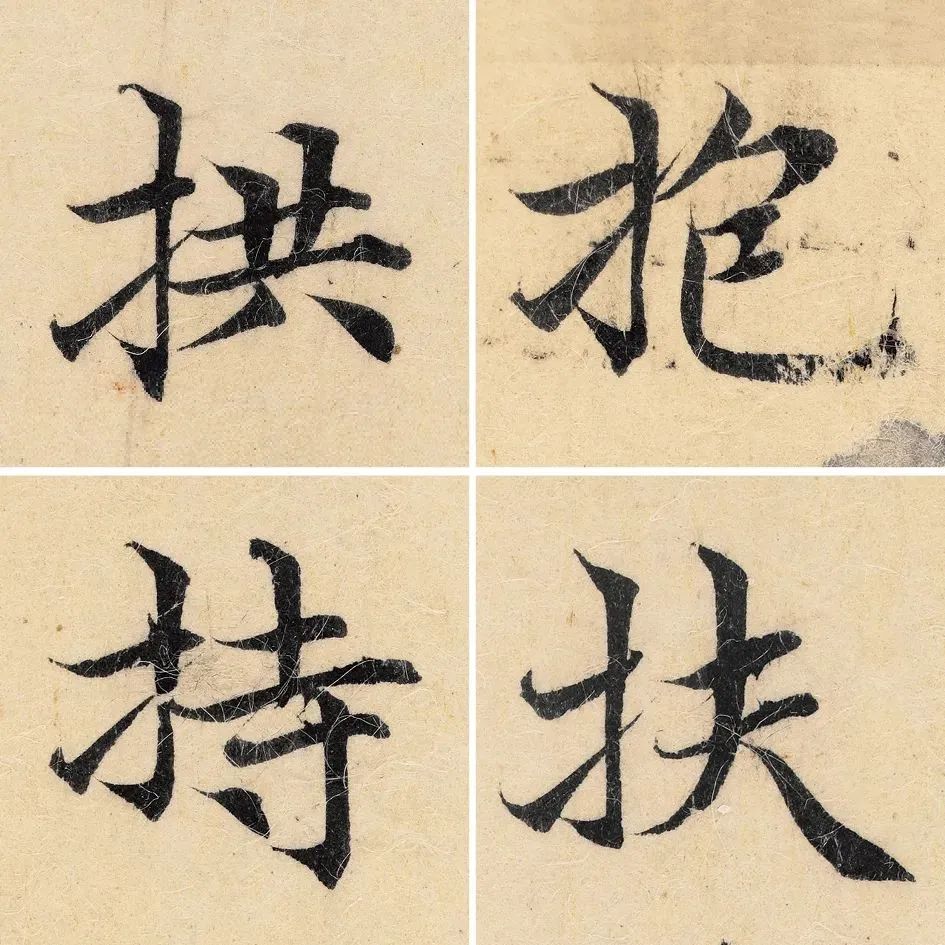 拱抱
持扶